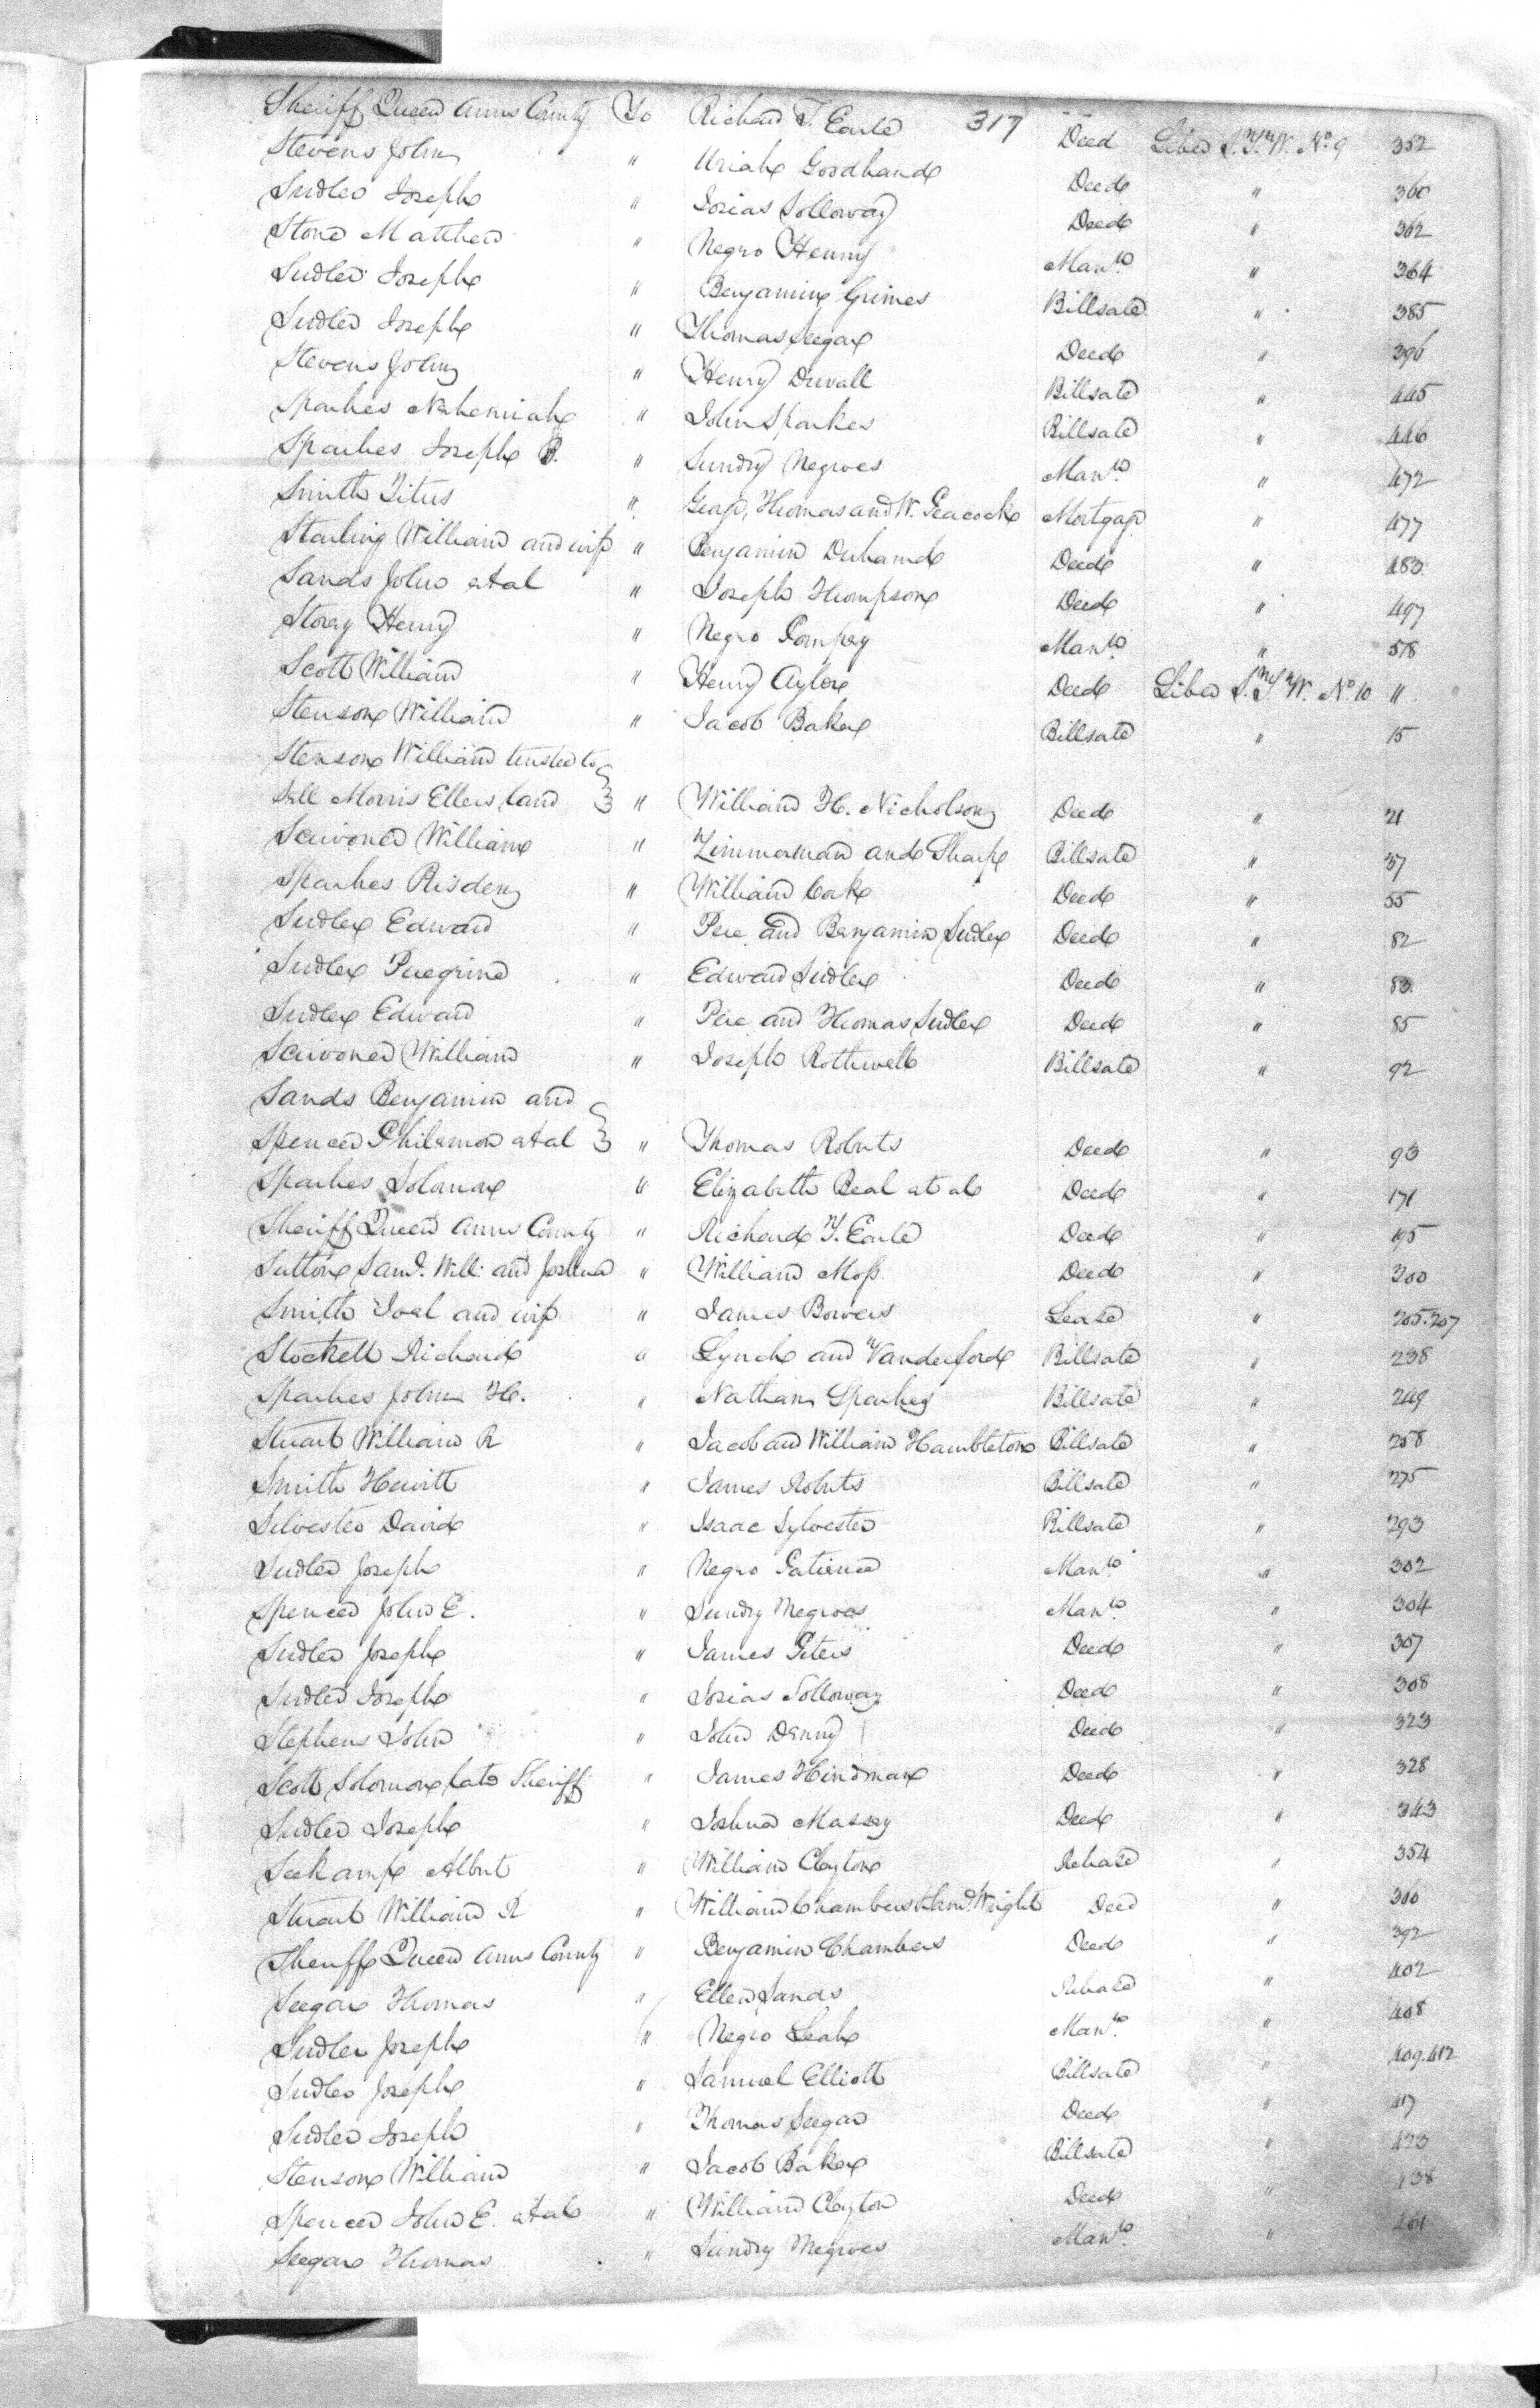 317
Sheriff Queen Anns County To Richard T. Earle Deed Liber S.T.W. No. 9 352
Stevens John " Uriah Goodhand Deed " 360
Sudler Joseph " Josias Solloway Deed " 362
Stone Matthew " Negro Henny Manto. " 364
Sudler Joseph " Benjamin Grimes Billsale " 385
Sudler Joseph " Thomas Seegar Deed " 396
Stevens John " Henry Duvall Billsale " 445
Sparkes Nehemiah " John Sparkes Billsale " 446
Sparkes Joseph B. " Sundry Negroes Manto. " 472
Smith Titus " George, Thomas and W. Peacock Mortgage " 477
Starling William and wife " Benjamin Duhamel Deed " 483
Sands John et al " Joseph Thompson Deed " 497
Storey Henry " Negro Pompey Manto. " 518
Scott William " Henry Aylor Deed Liber S.T.W. No. 10 11
Stenson William " Jacob Baker Billsale " 15
Stenson William trusted to
Sell Morris Ellers land " William H. Nicholson Deed " 21
Scrivener William " Zimmerman and Sharpe Billsale " 37
Sparkes Risden " William Cork Deed " 55
Sudler Edward " Pere and Benjamin Sudler Deed " 82
Sudler Peregrine " Edward Sudler Deed " 83
Sudler Edward " Pere and Thomas Sudler Deed " 85
Scrivener William " Joseph Rothwell Billsale " 92
Sands Benjamin and
Spencer Philemon et al " Thomas Roberts Deed " 93
Sparkes Solomon " Elizabeth Beal et al Deed " 171
Sheriff Queen Anns County " Richard T. Earle Deed " 195
Sutton Saml. Will: and Joshua " William Moss Deed " 200
Smith Joel and wife " James Bowers Lease " 205.207
Stockett Richard " Lynch and Vanderford Billsale " 238
Sparkes John H. " Nathan Sparkes Billsale " 249
Stuart William R " Jacob and William Hambleton Billsale " 258
Smith Hewitt " James Roberts Billsale " 275
Silvester David " Isaac Sylvester Billsale " 293
Sudler Joseph " Negro Patience Manto. " 302
Spencer John E. " Sundry Negroes Manto. " 304
Sudler Joseph " James Peters Deed " 307
Sudler Joseph " Josias Solloway Deed " 308
Stephens John " John Denny Deed " 323
Scott Solomon late Sheriff " James Hindman Deed " 328
Sudler Joseph " Joshua Massey Deed " 343
Seekamp Albert " William Clayton Release " 354
Stuart William R " William Chambers & Saml. Wright Deed " 360
Sheriff Queen Anns County " Benjamin Chambers Deed " 392
Seegar Thomas " Ellen Sands Release " 402
Sudler Joseph " Negro Leah Manto. " 408
Sudler Joseph " Samuel Elliott Billsale " 409.412
Sudler Joseph " Thomas Seegar Deed " 417
Stenson William " Jacob Baker Billsale " 423
Spencer John E. et al " William Clayton Deed " 438
Seegar Thomas " Sundry Negroes Manto. " 461